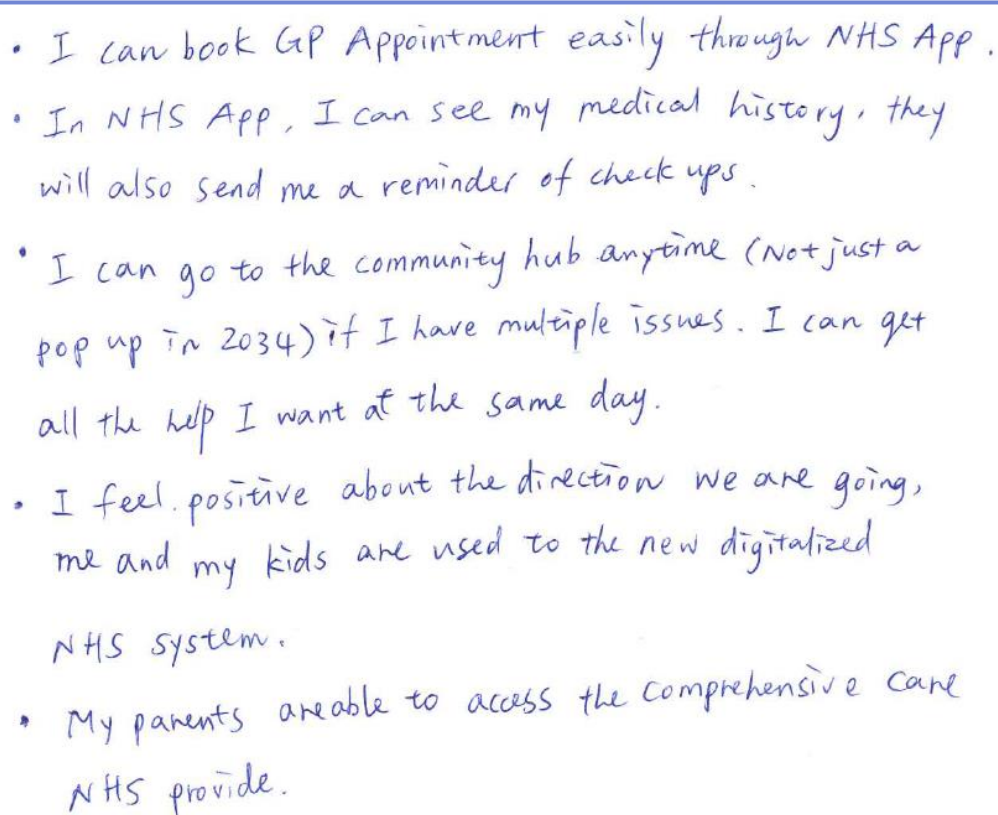 • I can book GP Appointment easily through NHS App.
• In NHS App, I can see my medical history, they
will also send me a reminder of check ups.
• I can go to the community hub anytime (Not just a
pop up in 2034) if I have multiple issues. I can get
all the help I want at the same day.
• I feel positive about the direction we are going,
me and my kids are used to the new digitalized
NHS system.
• My parents are able to access the comprehensive care
NHS provide.